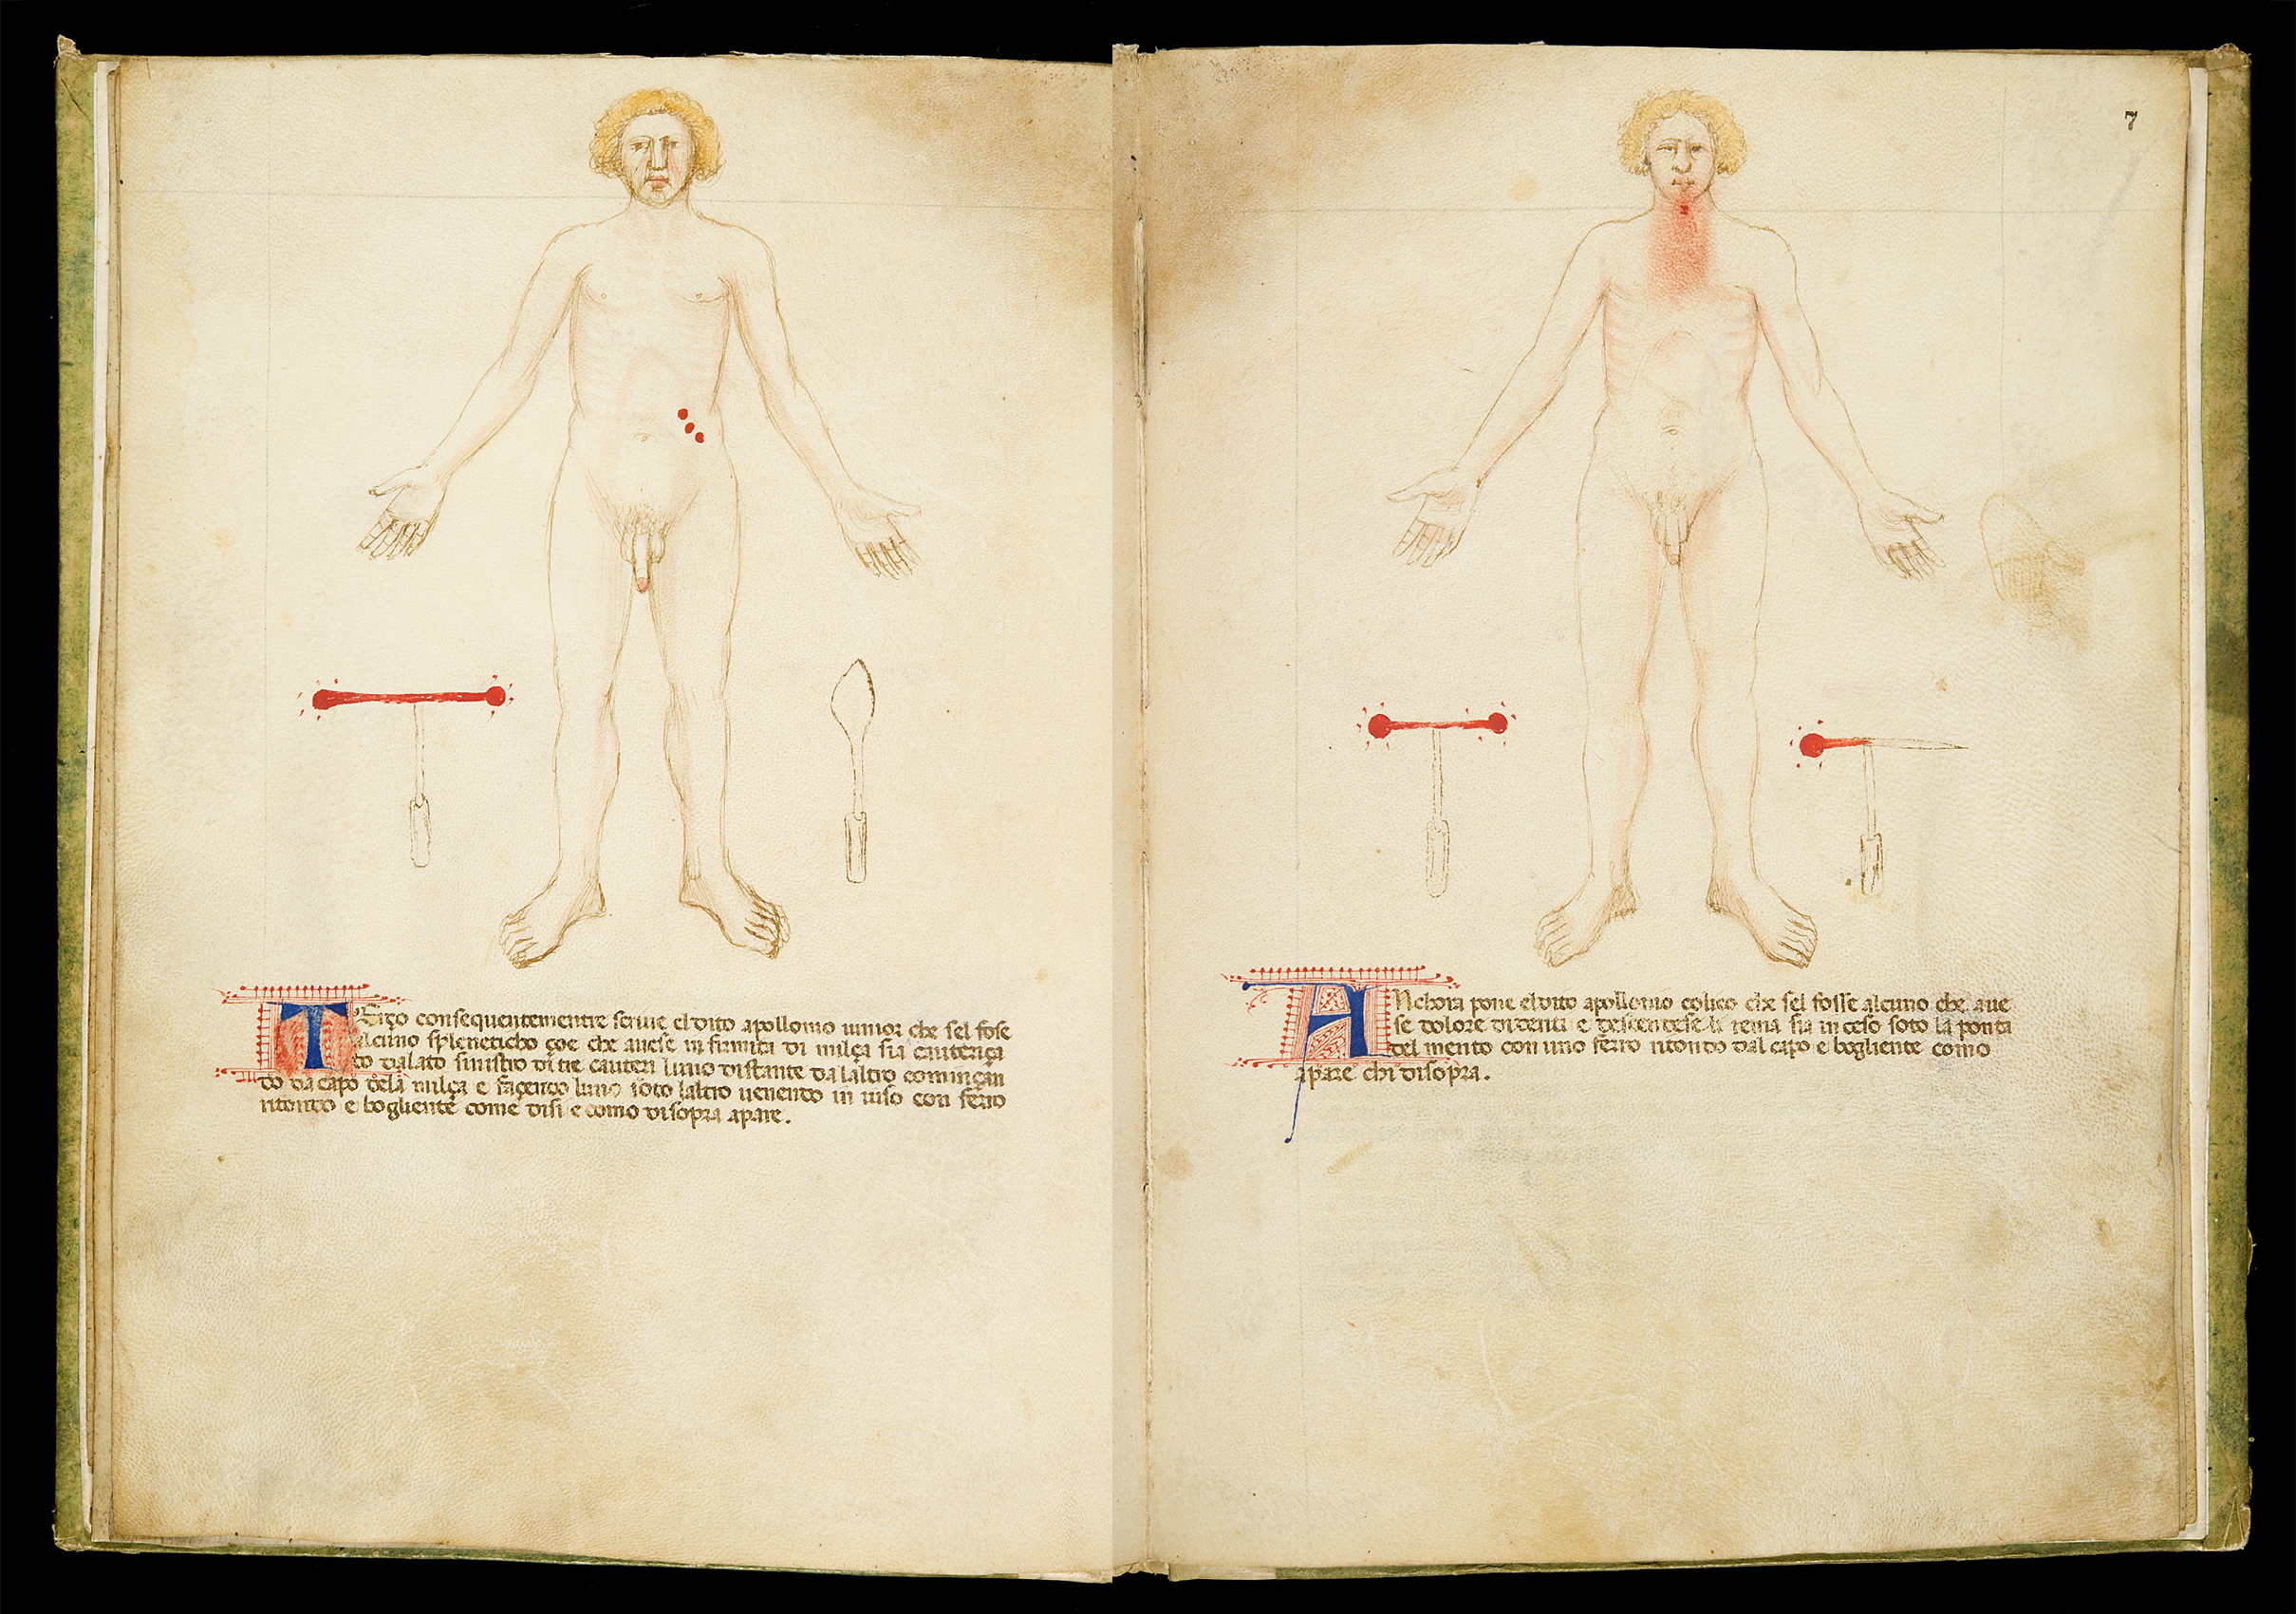 TErço consequentementre scriue el dito apollonio iunior che sel fose
alcuno spleneticho çoe che auese infirmita di milça sia cauteriça
to dalato sinistro di tre cauteri luno distante dalaltro cominçan
do da capo dela milça e façendo luno soto laltro uenendo in uiso con ferro
ritondo e bogliente come disi e como disopra apare.
7
ANchora pone el dito apollonio che sel fosse alcuno che aue
se dolore di denti e descendese li rema sia inceso soto la ponta
del mento con uno ferro ritondo dal capo e bogliente como
apare chi disopra.